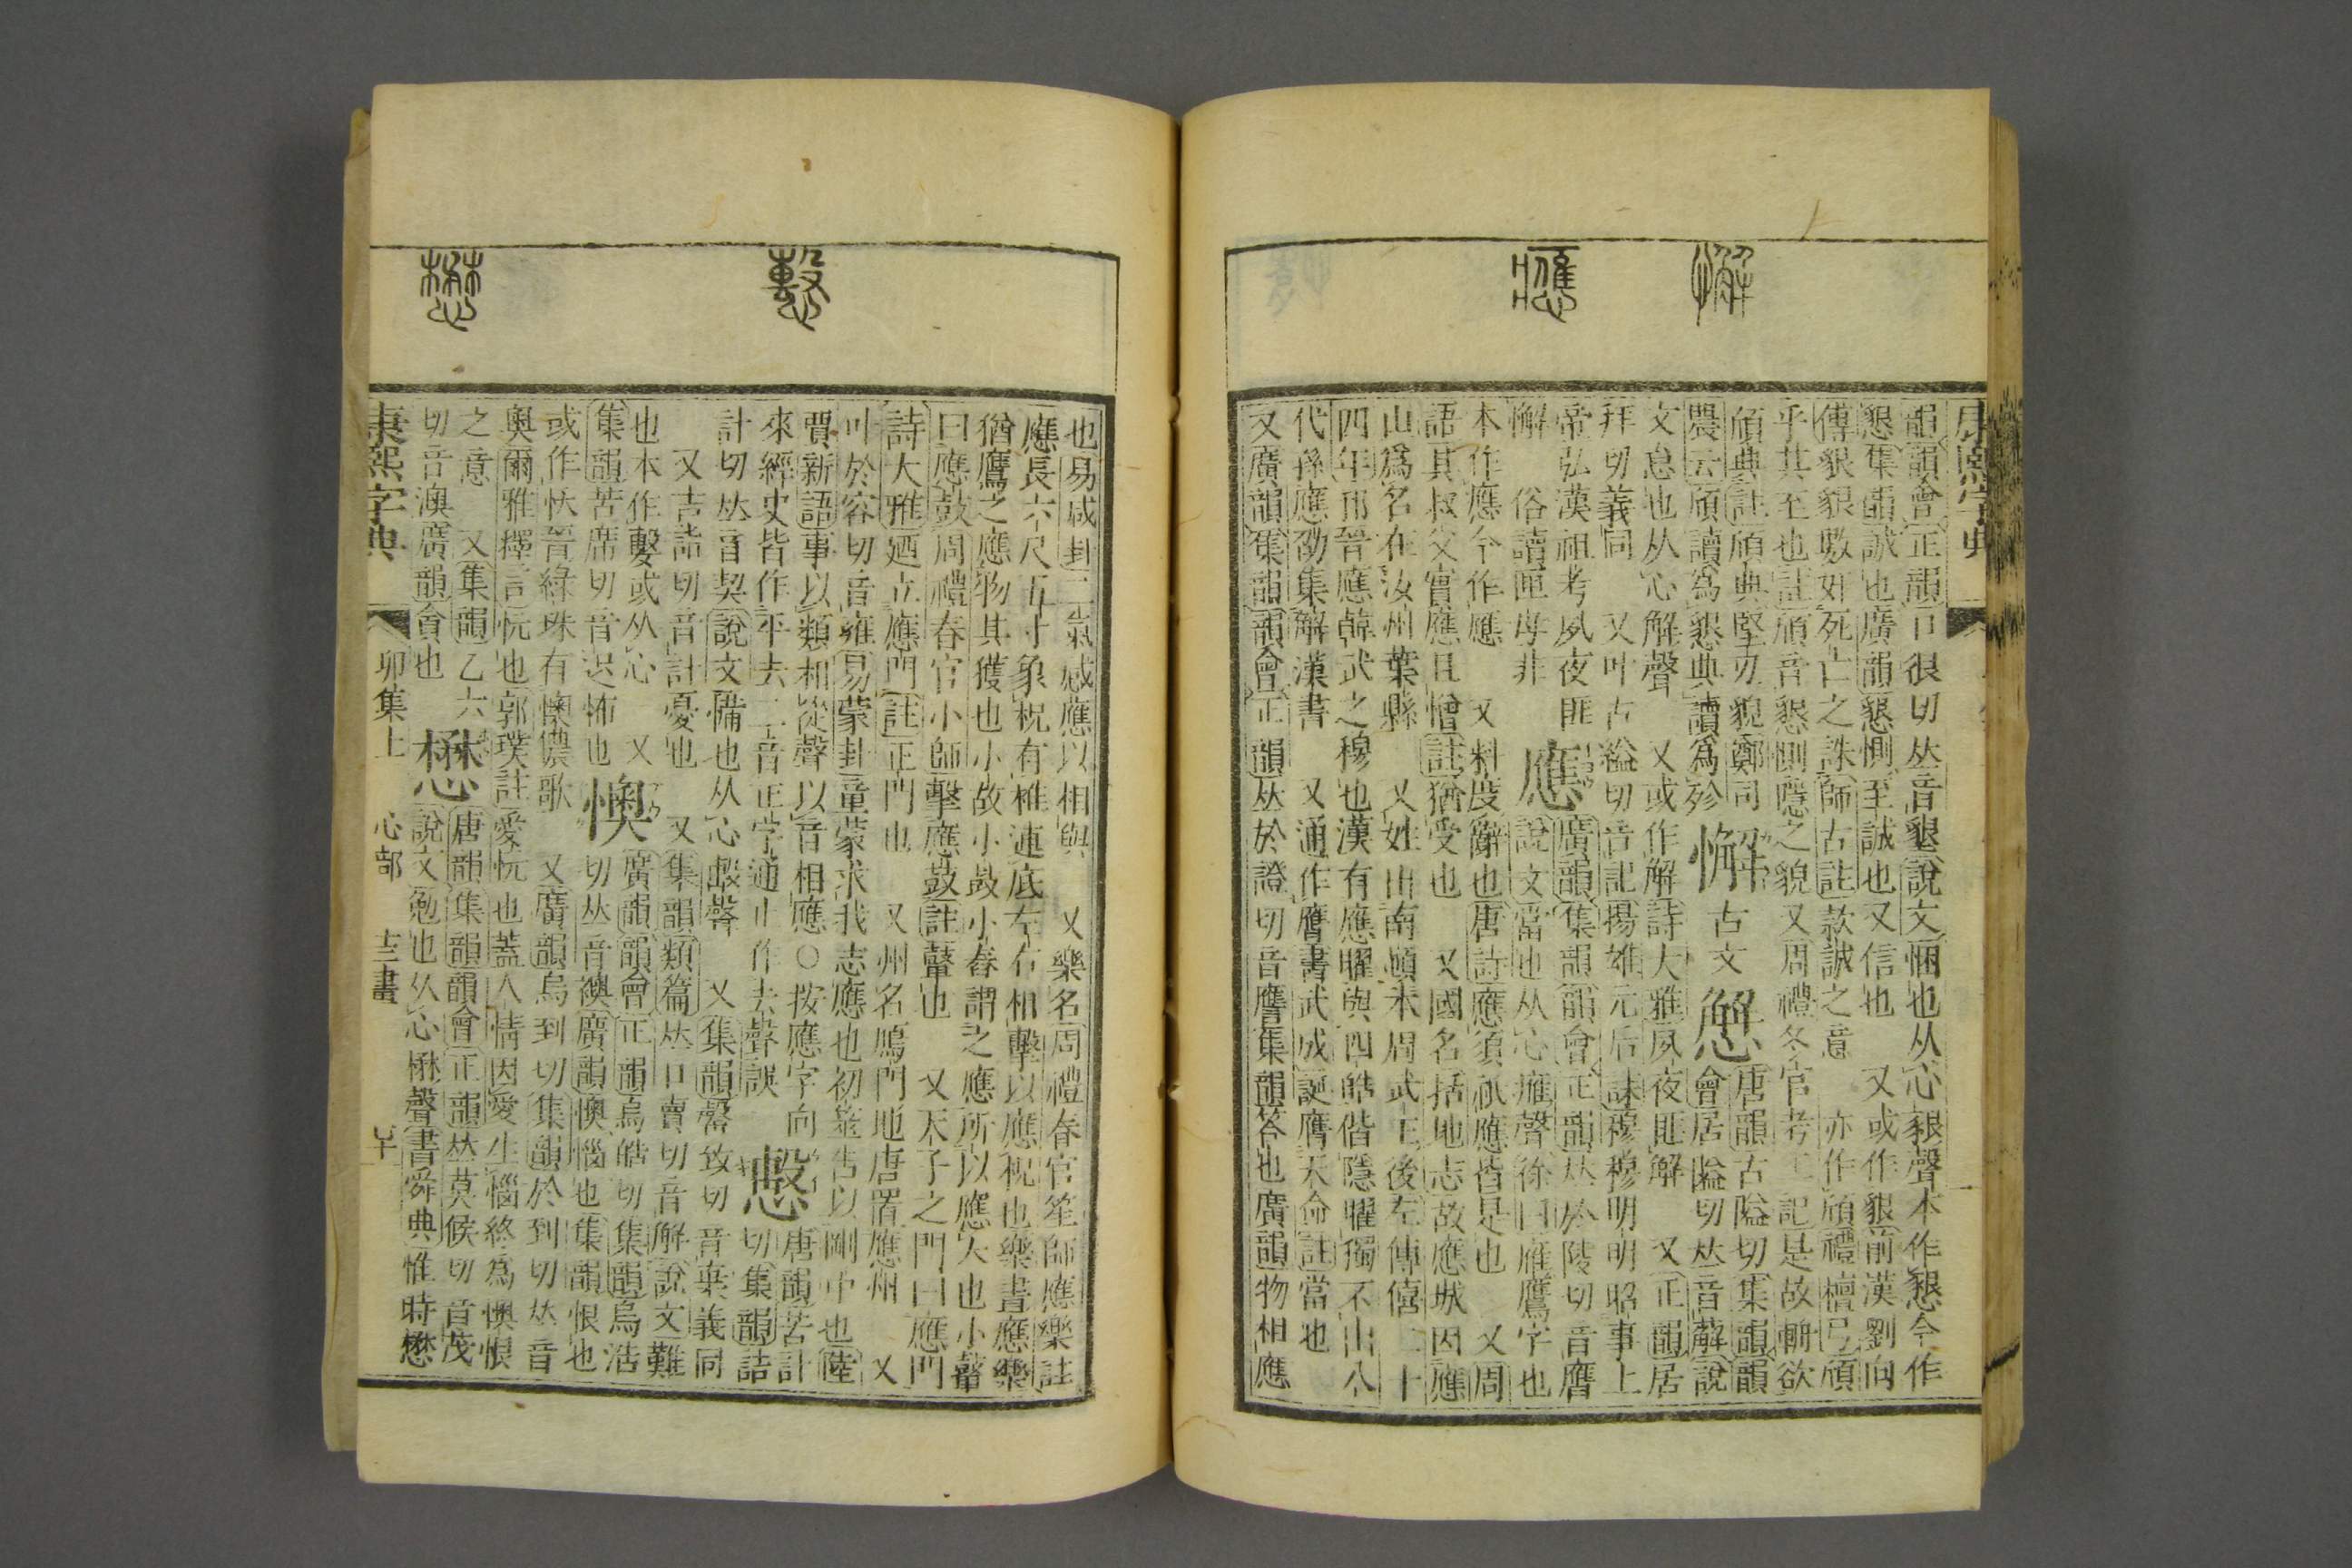 康熙字典
懈
應
韻韻會正韻口很切𠀤音墾說文悃也从心豤聲本作懇今作
懇集韻誠也廣韻懇惻至誠也又信也 又或作豤前漢劉向
傳豤豤數奸死亡之誅師古註款誠之意 亦作頎禮檀弓頎
乎其至也註頎音懇惻隱之貌又周禮冬官考工記是故輈欲
頎典註頎典堅刃貌鄭司
農云頎讀爲懇典讀爲殄
懈 古文 懈
唐韻古隘切集韻韻
會居隘切𠀤音廨說
文怠也从心解聲 又或作解詩大雅夙夜匪解 又正韻居
拜切義同 又叶古縊切音記揚雄元后誄穆穆明明昭事上
帝弘漢祖考夙夜匪
懈 俗讀匣母非
應
廣韻集韻韻會正韻𠀤於陵切音膺
說文當也从心䧹聲徐曰䧹鷹字也
本作應今作應 又料度辭也唐詩應須祇應皆是也 又周
語其叔父實應且憎註猶受也 又國名括地志故應城因應
山爲名在汝州葉縣 又姓出南頓本周武王後左傳僖二十
四年邘晉應韓武之穆也漢有應曜與四皓偕隱曜獨不出八
代孫應劭集解漢書 又通作膺書武成誕膺天命註當也
又廣韻集韻韻會正韻𠀤於證切音譍集韻答也廣韻物相應
㥣
懋
也易咸卦二氣感應以相與 又樂名周禮春官笙師應樂註
應長六尺五寸象柷有椎連底左右相擊以應柷也樂書應樂
猶鷹之應物其獲也小故小鼓小舂謂之應所以應大也小鼙
曰應鼓周禮春官小師擊應鼓註鼙也 又天子之門曰應門
詩大雅廼立應門註正門也 又州名鴈門地唐置應州 又
叶於容切音雍易蒙卦童蒙求我志應也初筮告以剛中也陸
賈新語事以類相從聲以音相應○按應字向
來經史皆作平去二音正字通止作去聲誤
㥣
唐韻苦計
切集韻詰
計切𠀤音契說文㒆也从心毄聲 又集韻罄致切音棄義同
又吉詣切音計憂也 又集韻類篇𠀤口賣切音解說文難
也本作毄或从心 又
集韻苦席切音𢖵怖也
懊
廣韻韻會正韻烏皓切集韻烏浩
切𠀤音襖廣韻懊惱也集韻恨也
或作怏晉綠珠有懊儂歌 又廣韻烏到切集韻於到切𠀤音
奧爾雅釋言忨也郭璞註愛忨也蓋人情因愛生惱終爲懊恨
之意 又集韻乙六
切音澳廣韻貪也
懋
唐韻集韻韻會正韻𠀤莫候切音茂
說文勉也从心楙聲書舜典惟時懋
康熙字典 卯集上 心部 十三畫